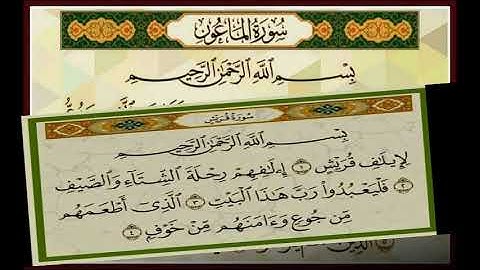 سُورَةُ المَاعُونِ
بِسْمِ اللَّهِ الرَّحْمَٰنِ الرَّحِيمِ
سُورَةُ قُرَيْشٍ
بِسْمِ اللَّهِ الرَّحْمَٰنِ الرَّحِيمِ
لِإِيلَٰفِ قُرَيْشٍ ١ إِۦلَٰفِهِمْ رِحْلَةَ الشِّتَآءِ وَالصَّيْفِ
٢ فَلْيَعْبُدُوا۟ رَبَّ هَٰذَا الْبَيْتِ ٣ الَّذِىٓ أَطْعَمَهُم
مِّن جُوعٍ وَءَامَنَهُم مِّنْ خَوْفٍۭ ٤